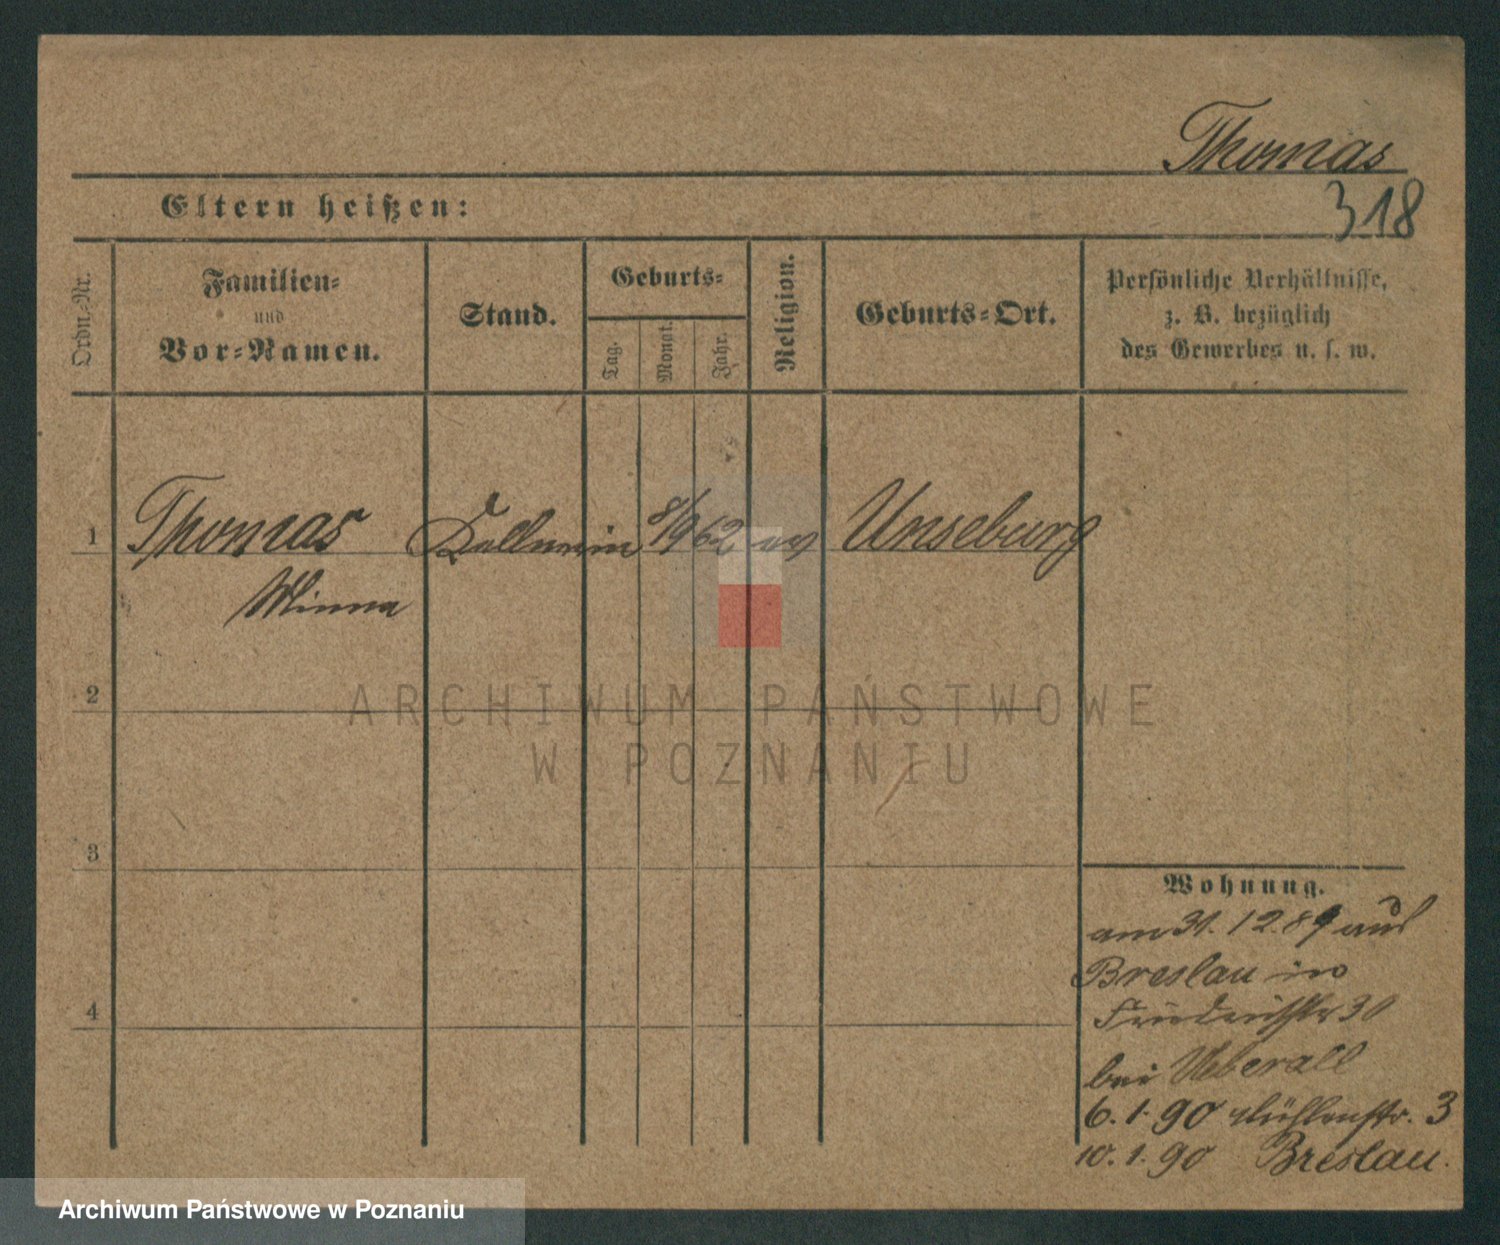 Thomas
Eltern heißen:
318
Ordn.-Nr.
Familien-
und
Vor-Namen.
Stand.
Geburts-
Tag.
Monat.
Jahr.
Religion.
Geburts-Ort.
Persönliche Verhältnisse,
z. B. bezüglich
des Gewerbes u. s. w.
1
Thomas
Kellnerin
8/9 62
ev
Unseburg
Minna
2
ARCHIWUM PAŃSTWOWE
W POZNANIU
3
Wohnung.
am 31.12.89 aus
Breslau in
4
Friedrichstr 30
bei Ueberall
6.1.90 Mühlenstr. 3
10.1.90 Breslau.
Archiwum Państwowe w Poznaniu